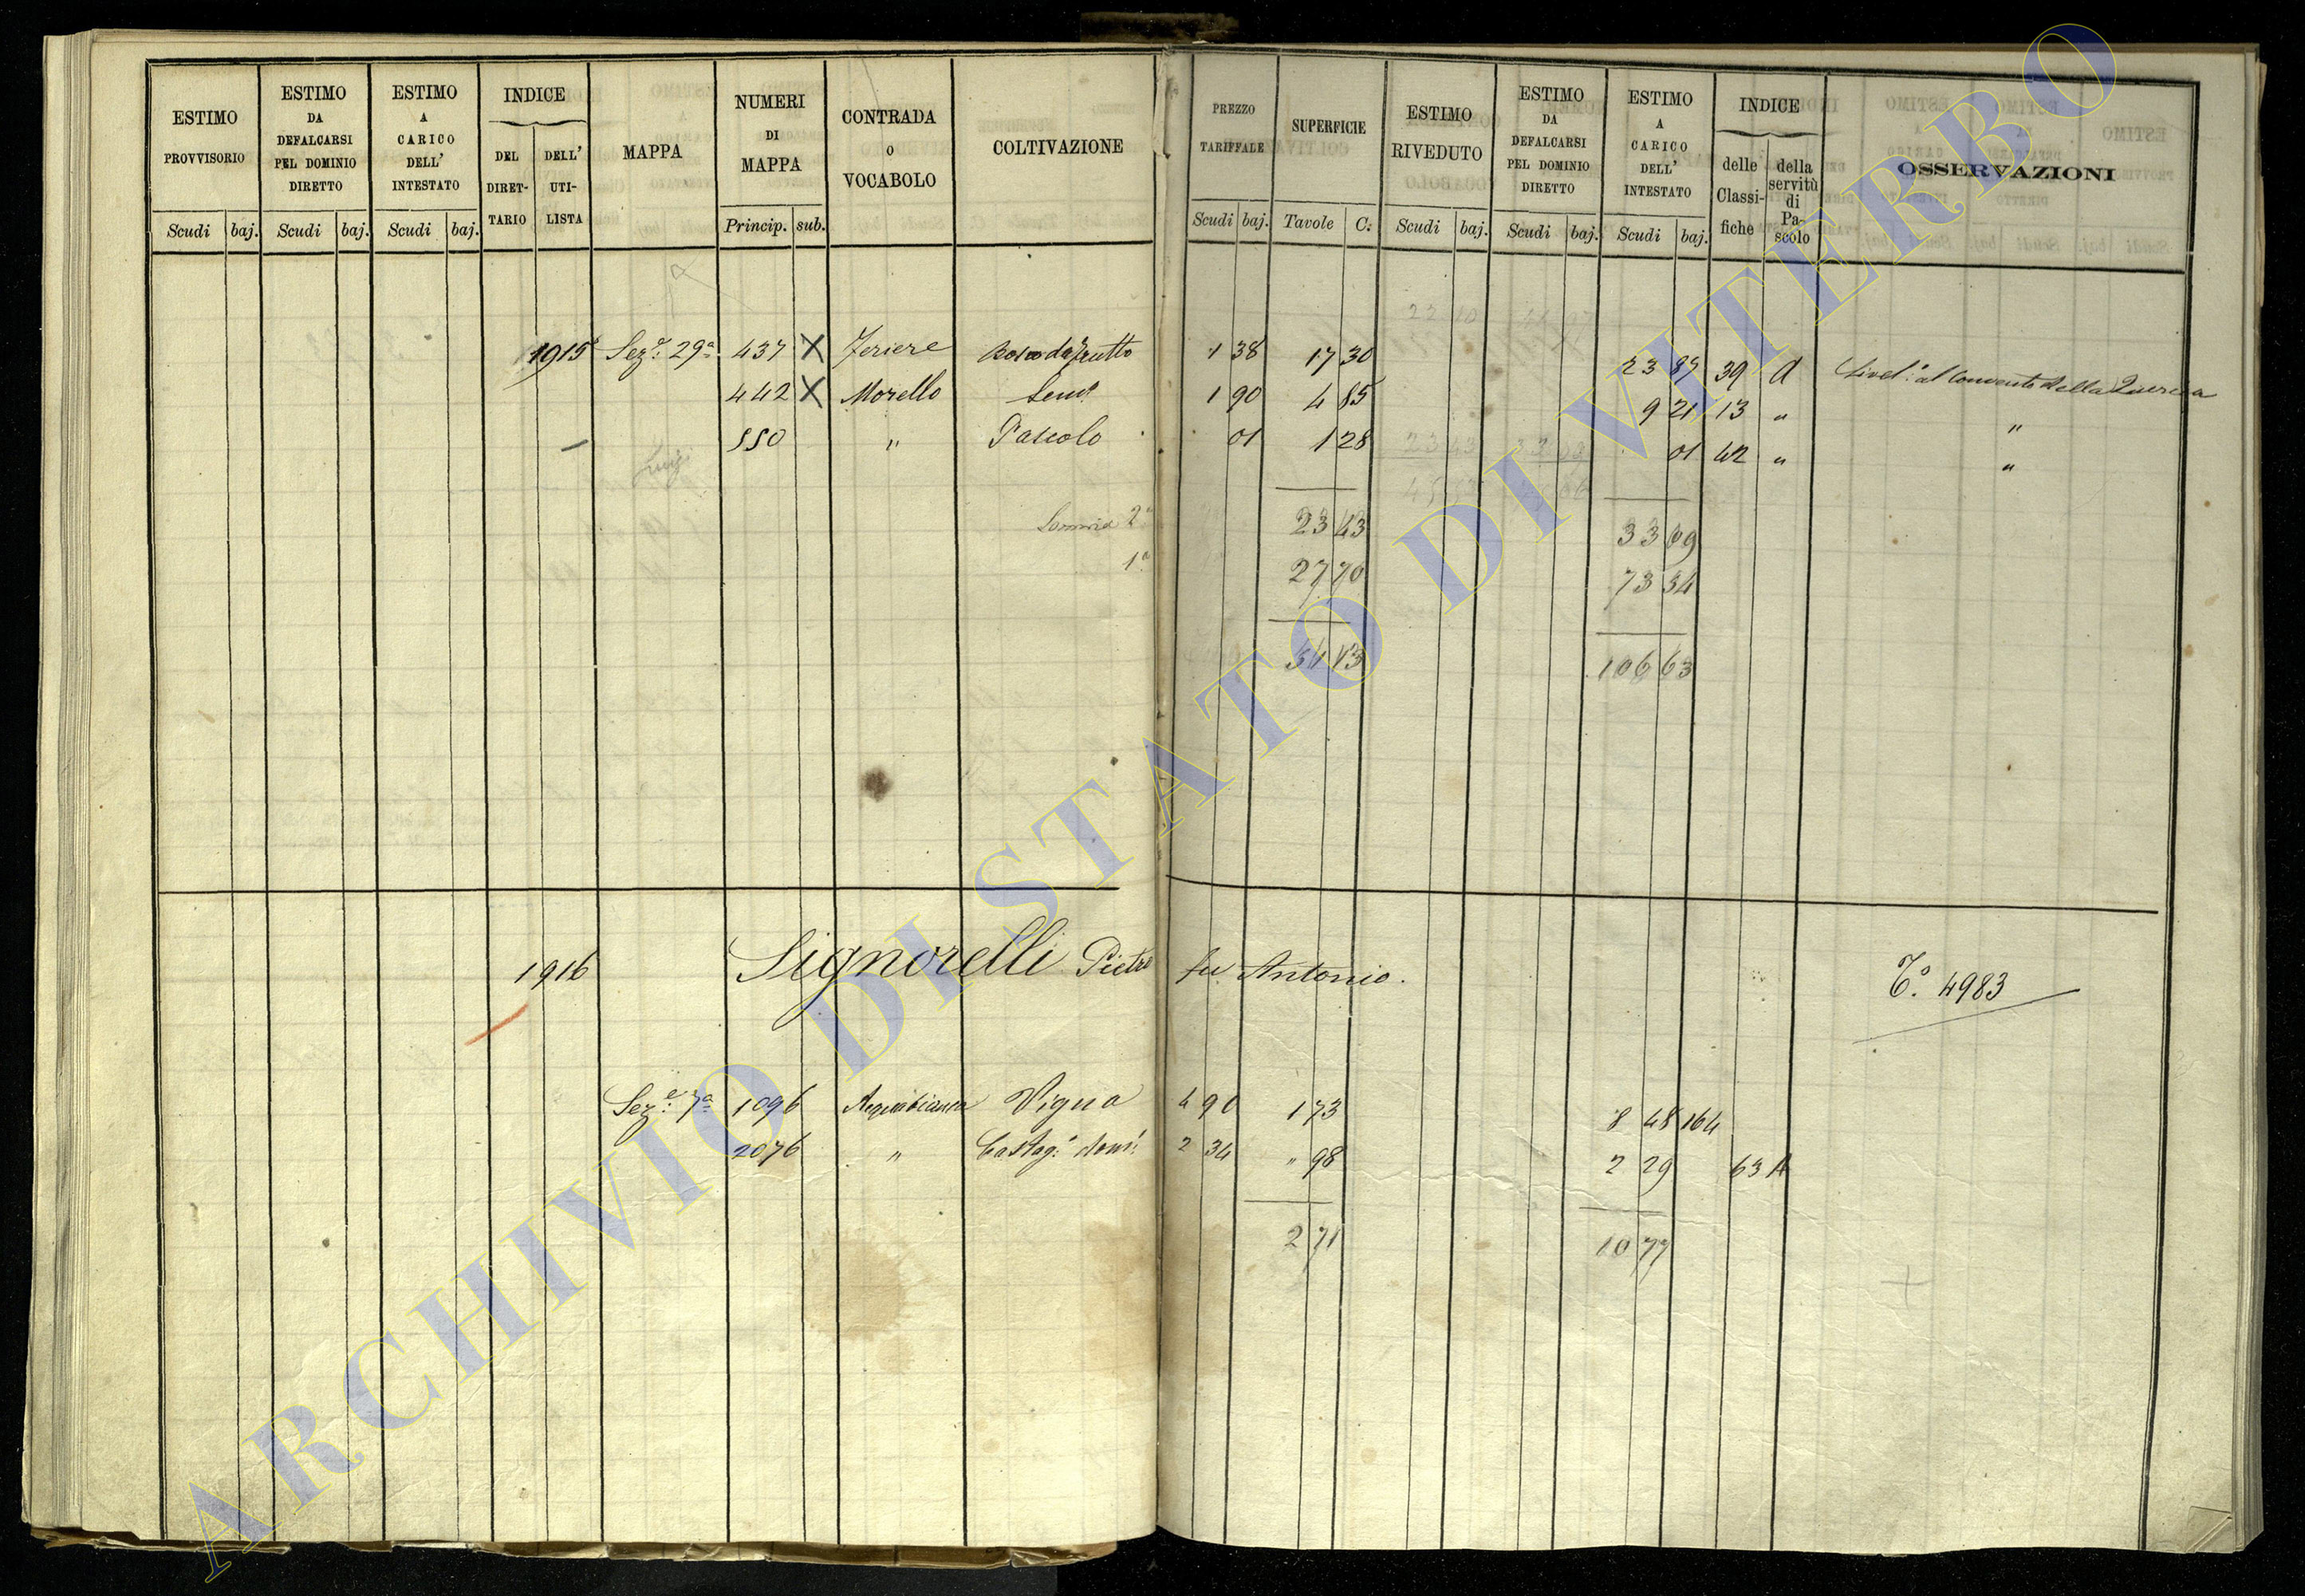 ESTIMO PROVVISORIO
ESTIMO DA DEFALCARSI PEL DOMINIO DIRETTO
ESTIMO A CARICO DELL' INTESTATO
INDICE
DEL DIRETTARIO
DELL' UTILISTA
MAPPA
NUMERI DI MAPPA
CONTRADA O VOCABOLO
COLTIVAZIONE
PREZZO TARIFFALE
SUPERFICIE
ESTIMO RIVEDUTO
ESTIMO DA DEFALCARSI PEL DOMINIO DIRETTO
ESTIMO A CARICO DELL' INTESTATO
INDICE
delle Classifiche
della servitù di Pascolo
OSSERVAZIONI
Scudi baj. Scudi baj. Scudi baj. Princip. sub. Scudi baj. Tavole C: Scudi baj. Scudi baj. Scudi baj.
1915 Sez.e 29a 437 X Feriere Bosco da frutto 1 38 17 30 23 87 39 A Livel.o al Convento della Quercia
442 X Morello Semo 1 90 4 85 9 21 13 "
550 " Pascolo 01 1 28 01 42 " "
Somma 2a 23 43 33 09
1a 27 70 73 54
51 13 106 63
1916 Signorelli Pietro fu Antonio. To. 4983
Sez.e 7a 1096 Acquabianca Vigna 4 90 1 73 8 48 164
2076 " Castag.o dom. 2 34 " 98 2 29 63 A
2 71 10 77
ARCHIVIO DI STATO DI VITERBO